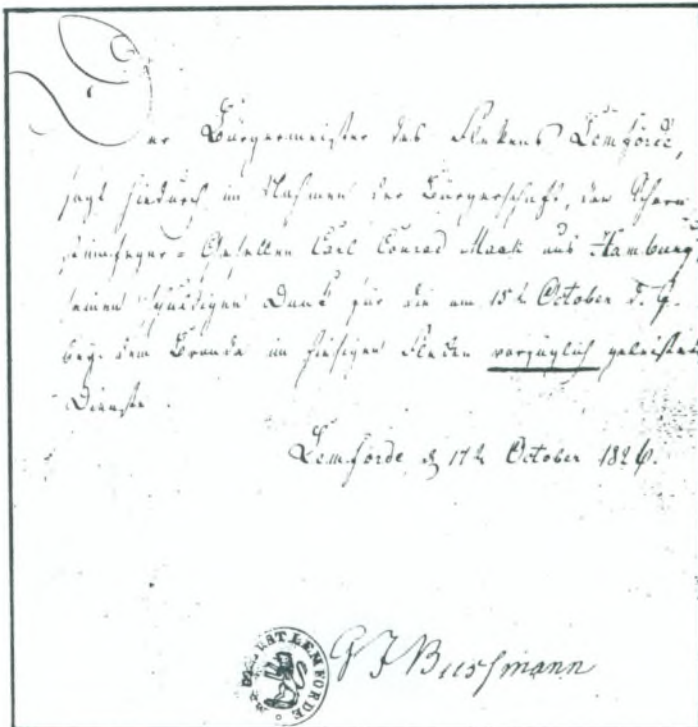 Der Bürgermeister des Flekens Lemförde,
sagt hiedurch im Nahmen der Bürgerschaft, den Schorn
steinfeger-Gesellen Carl Conrad Maack aus Hamburg,
seinen schuldigen Dank für die am 15t October d. J.
bey dem Brande im hiesigen Flecken vorzüglich geleisteten
Dienste.
Lemförde d 17t October 1826.
G J Buschmann
LEMFORDE